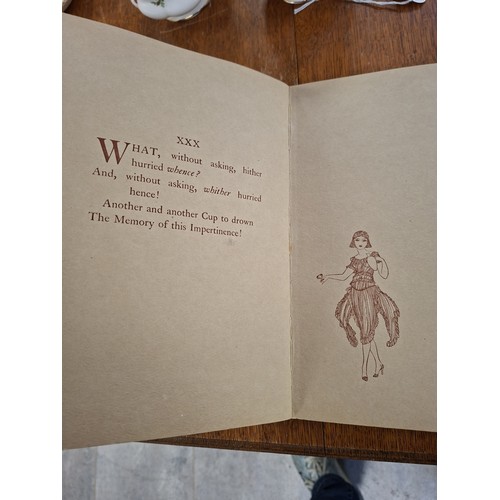 XXX
WHAT, without asking, hither
hurried whence?
And, without asking, whither hurried
hence!
Another and another Cup to drown
The Memory of this Impertinence!